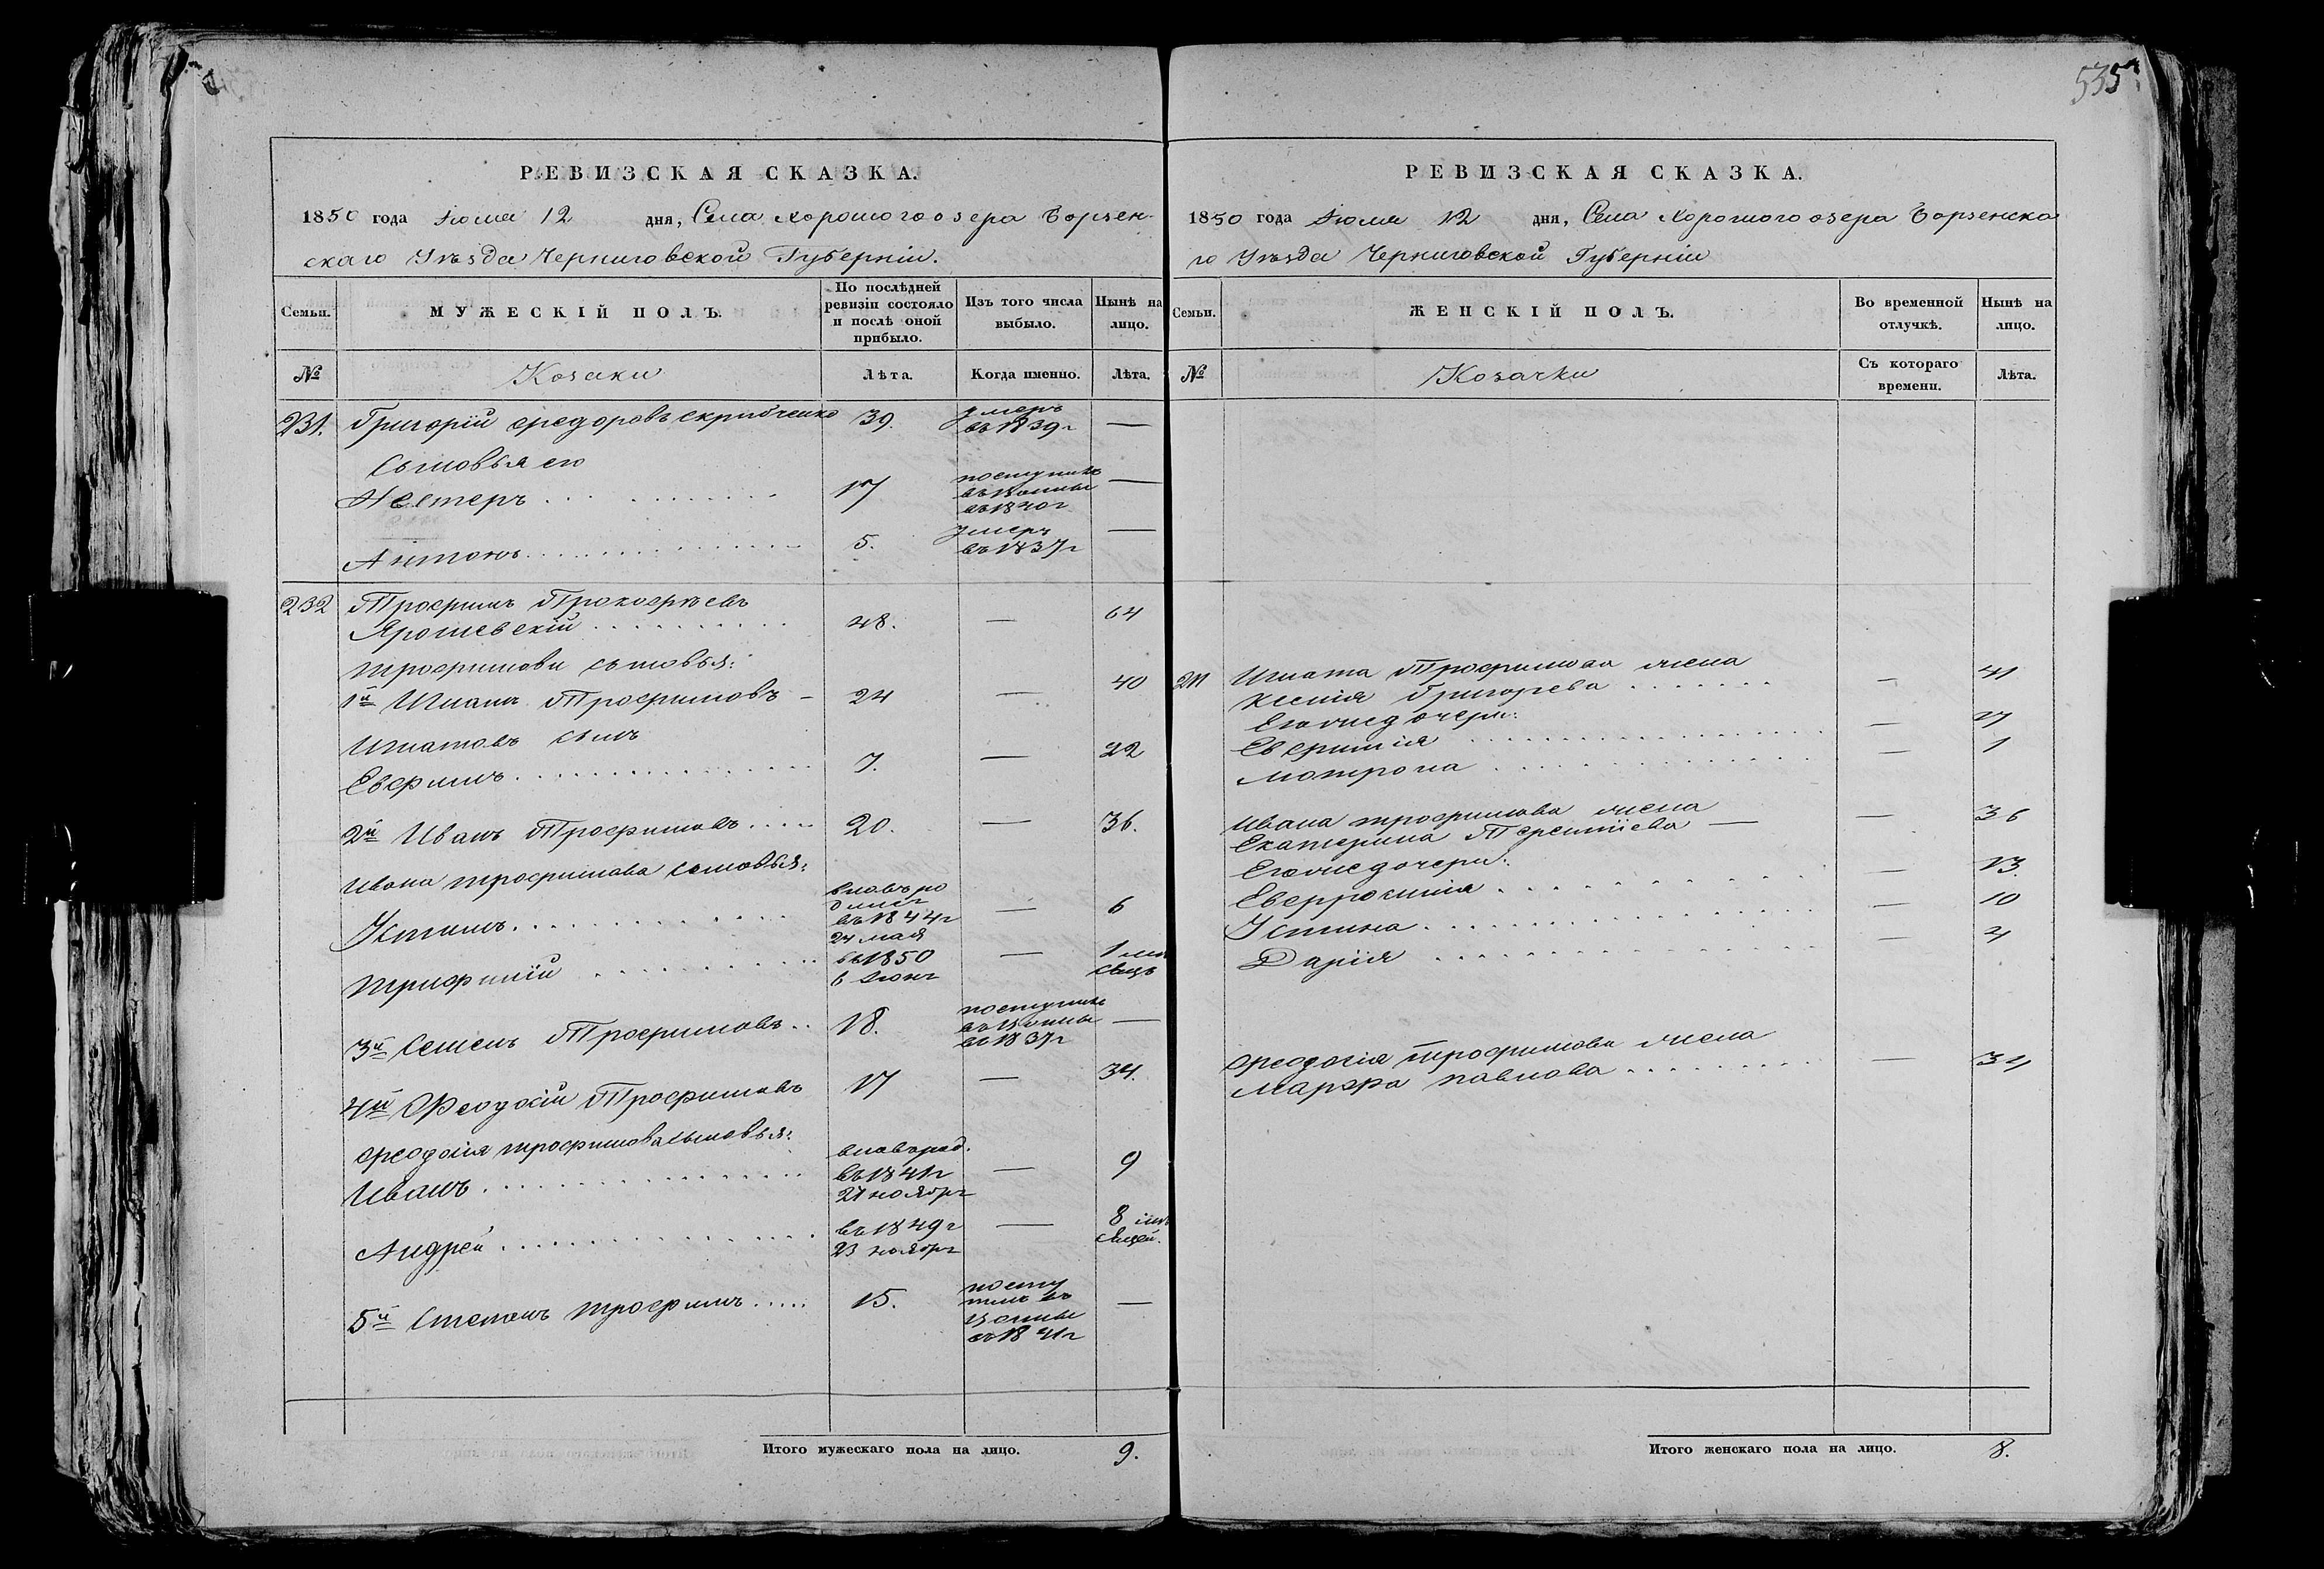 535
РЕВИЗСКАЯ СКАЗКА.
1850 года Іюля 12 дня, Села Хорошого озера Борзен-
скаго Уѣзда Черниговской Губерніи.
Семьи.
МУЖЕСКІЙ ПОЛЪ.
По послѣдней ревизіи состояло и послѣ оной прибыло.
Изъ того числа выбыло.
Нынѣ на лицо.
№
Козаки
Лѣта.
Когда именно.
Лѣта.
231. Григорій Федоровъ Скрипченко 39. умеръ въ 1839 г —
Сыновья его
Нестеръ 17 поступилъ въ 1840 г —
Антонъ 5. умеръ въ 1837 г —
232 Трофимъ Прокофьевъ
Ярошевскій 48. — 64
Трофимови сыновья:
1й Игнатъ Трофимовъ – 24 — 40
Игнатовъ сынъ
Евфимъ 7. — 22
2й Иванъ Трофимовъ 20. — 36.
Ивана Трофимова сыновья:
Устимъ вновь родился въ 1844 г 24 мая — 6
Трифилій въ 1850 в Июне — 1 месяцъ
3й Семенъ Трофимовъ 18. поступилъ въ 1837 г —
4й Феодосій Трофимовъ 17 — 34.
Феодосія Трофимова сыновья:
Иванъ вновь род. въ 1841 г 21 ноября — 9
Андрей въ 1849 г 23 ноября — 8 месяцей.
5й Степанъ Трофимъ 15. поступилъ въ въ 1841 г —
Итого мужескаго пола на лицо. 9.
РЕВИЗСКАЯ СКАЗКА.
1850 года Іюля 12 дня, Села Хорошого озера Борзенска
го Уѣзда Черниговской Губерніи
Семьи.
ЖЕНСКІЙ ПОЛЪ.
Во временной отлучкѣ.
Нынѣ на лицо.
№
Козачки
Съ котораго времени.
Лѣта.
Игната Трофимова жена
Ксенія Григорева — 41
Его же дочери:
Евфимія — 17
Мотрона — 1
Ивана Трофимова жена
Екатерина Терентіева — — 36
Его же дочери:
Евфросинія — 13.
Устина — 10
Дарія — 4
Феодосія Трофимова жена
Марфа Павлова — 34
Итого женскаго пола на лицо. 8.